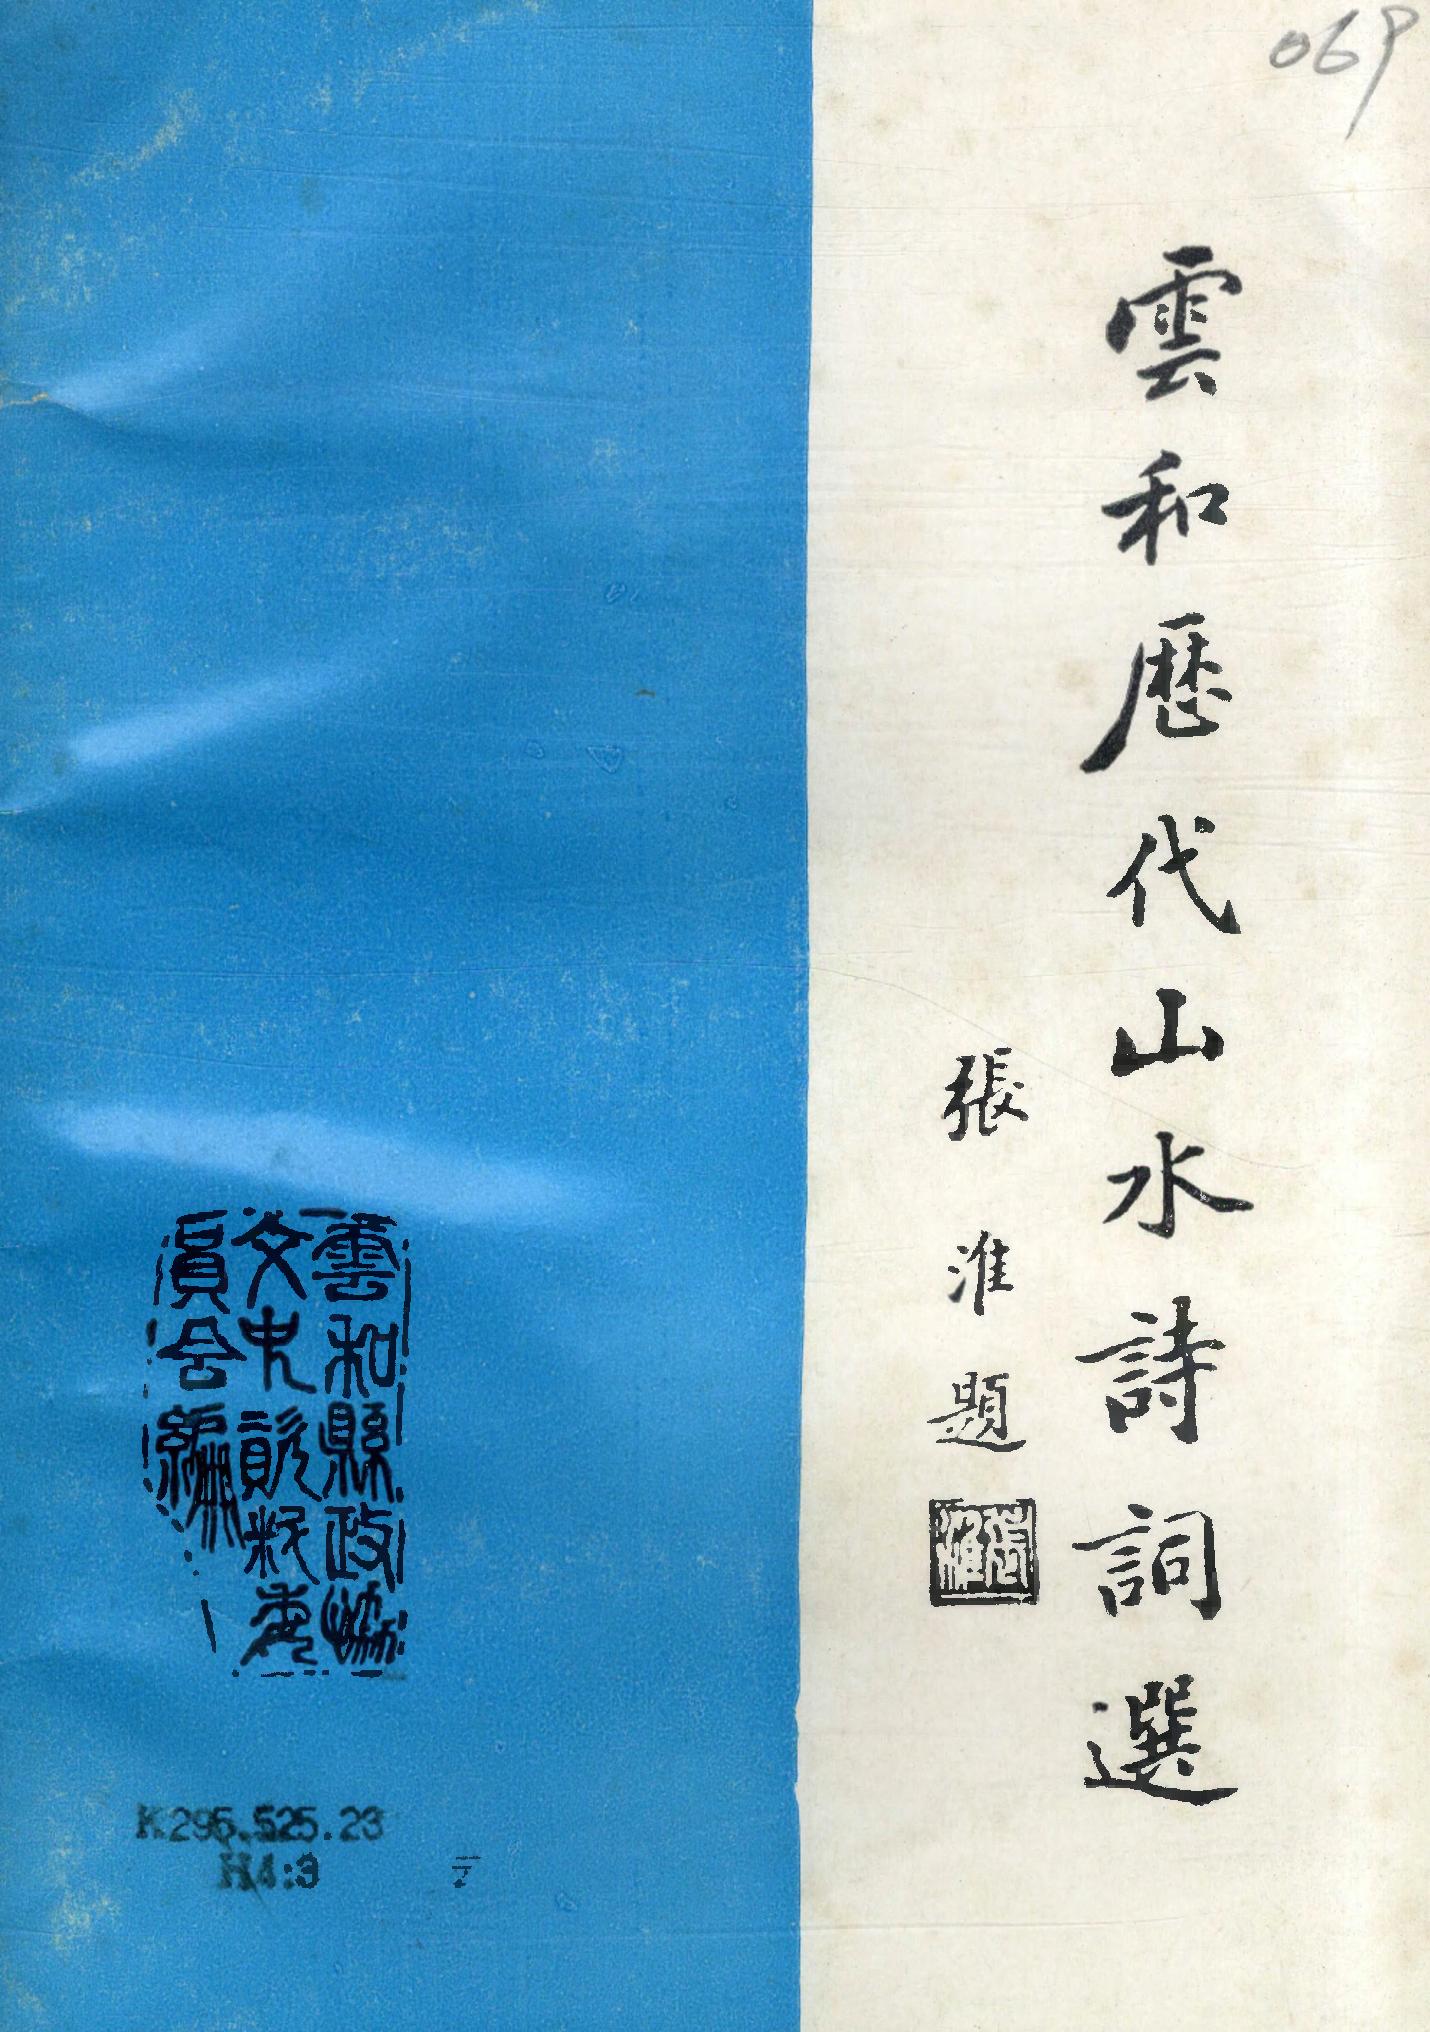 069
雲和歷代山水詩詞選
張淮題
張淮
雲和縣政協
文史資料委
員会編
K295.525.23
H4:3